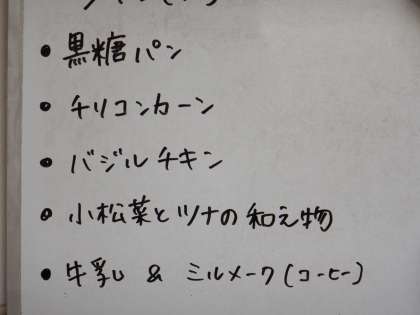 • 黒糖パン
• チリコンカーン
• バジルチキン
• 小松菜とツナの和え物
• 牛乳 & ミルメーク(コーヒー)